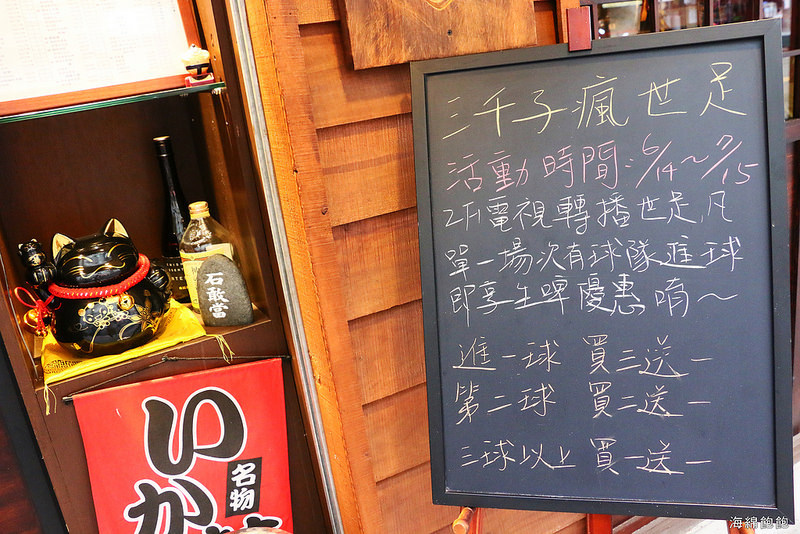 三千子瘋世足
活動時間:6/14~7/15
2F電視轉播世足,凡
單一場次有球隊進球
即享生啤優惠唷~
進一球 買三送一
第二球 買二送一
三球以上 買一送一
石敢當
いか
名物
海綿飽飽